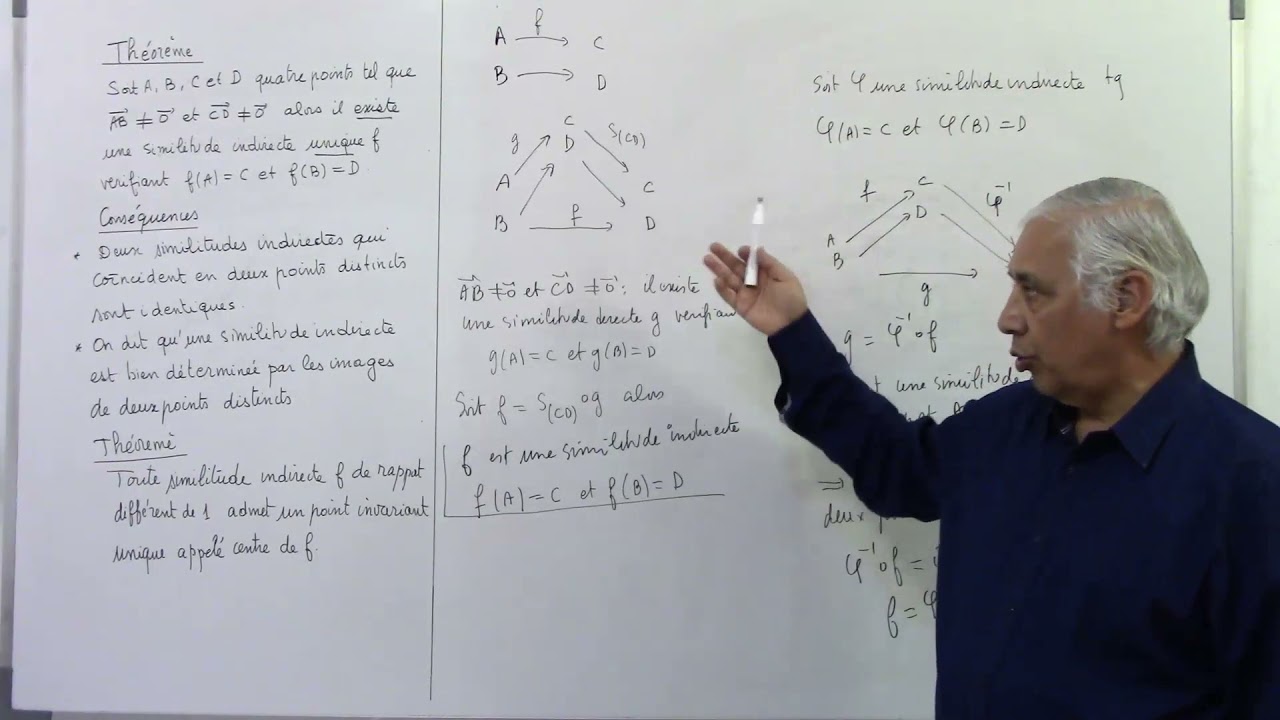 Théorème
Soit A, B, C et D quatre points tel que
AB ≠ 0 et CD ≠ 0 alors il existe
une similitude indirecte unique f
verifiant f(A) = C et f(B) = D.
Conséquences
* Deux similitudes indirectes qui
coïncident en deux points distincts
sont identiques.
* On dit qu'une similitude indirecte
est bien déterminée par les images
de deux points distincts
Théoremè
Toute similitude indirecte f de rapport
différent de 1 admet un point invariant
unique appelé centre de f.
f
A → C
B → D
g C D S(CD)
A C
B f D
AB ≠ 0 et CD ≠ 0 : il existe
une similitude directe g
g(A) = C et g(B) = D
Soit f = S(CD) o g alors
f est une similitude indirecte
f(A) = C et f(B) = D
Soit φ une similitude indirecte tq
φ(A) = C et φ(B) = D
f C φ⁻¹
D
A
B
g
g = φ⁻¹ o f
une similitude
⇒
deux
φ⁻¹ o f =
f = φ